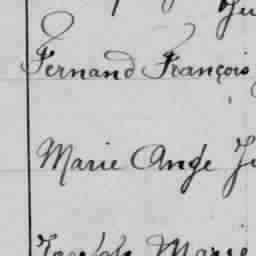 Fernand François
Marie Ange
Joseph Marie